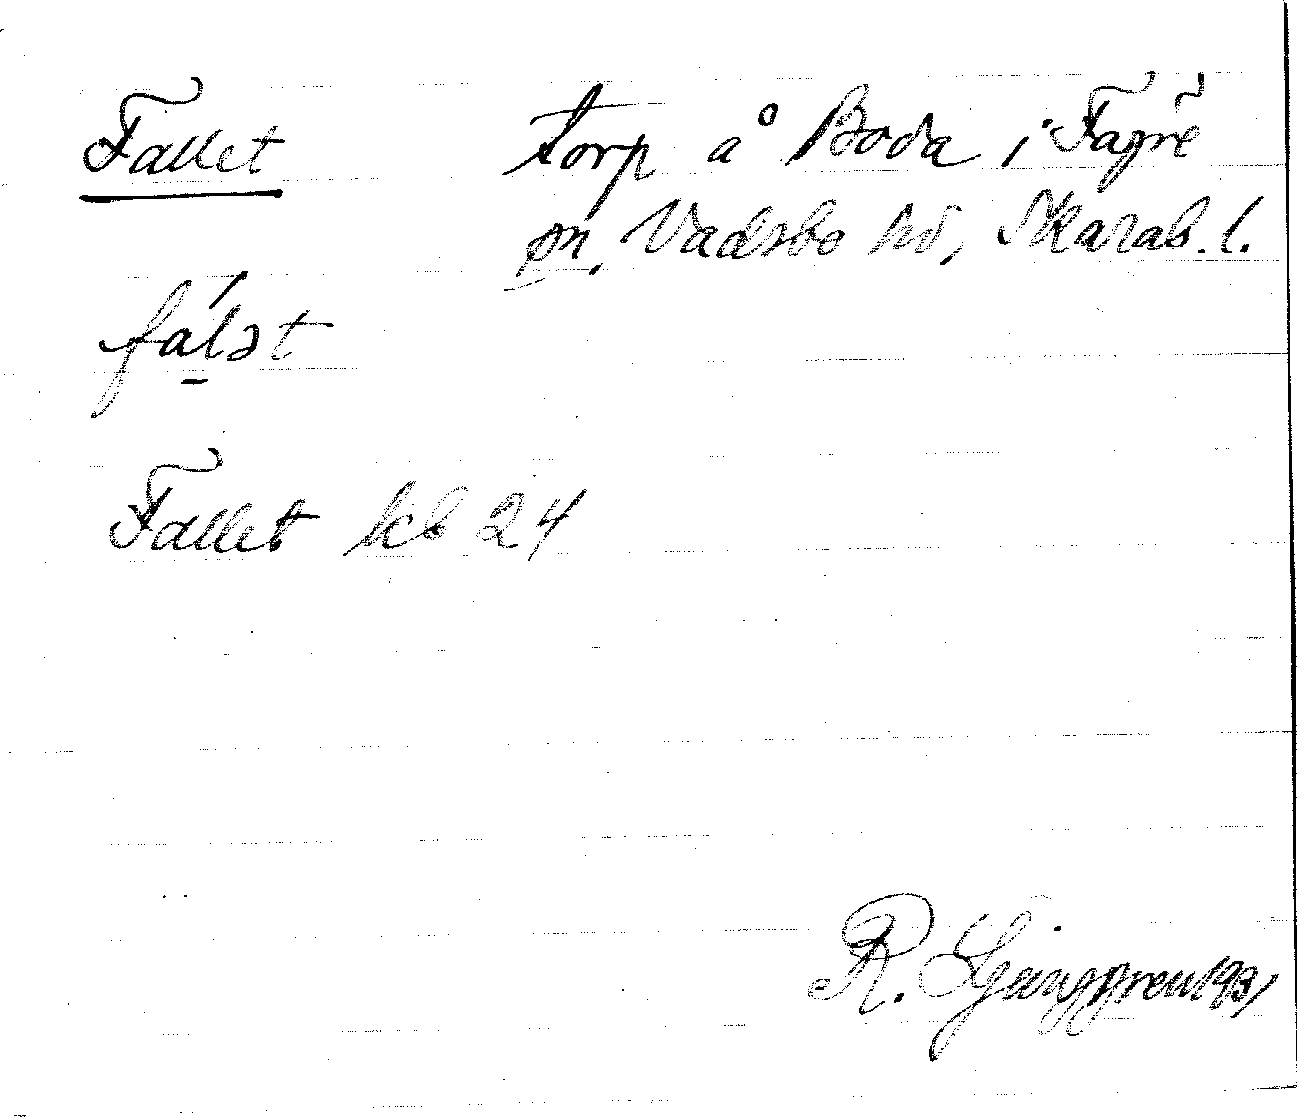 Fallet torp å Boda i Fägre
sn, Vadsbo hd, Skarab. l.
fa̲l´ət
Fallet kb 24
R. Ljunggren 1931